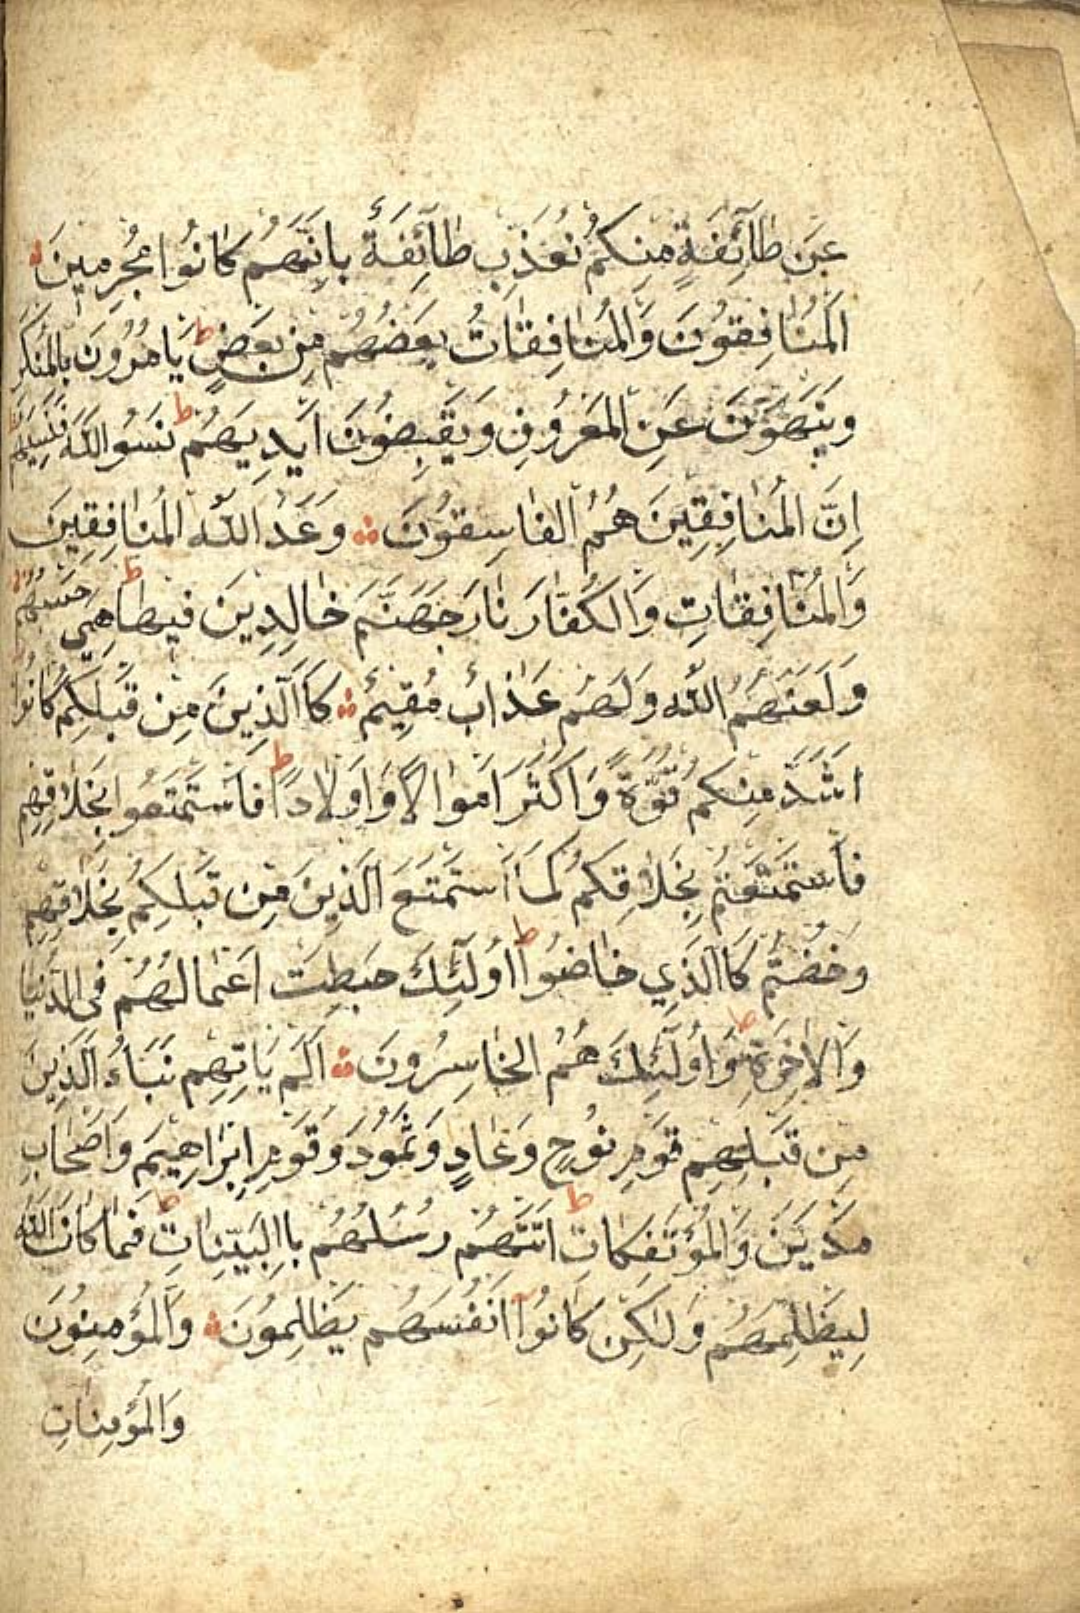 عَنْ طَآئِفَةٍ مِنْكُمْ نُعَذِّبْ طَآئِفَةً بِاَنَّهُمْ كَانُوا مُجْرِمِينَ
اَلْمُنَافِقُونَ وَالْمُنَافِقَاتُ بَعْضُهُمْ مِنْ بَعْضٍ ط يَاْمُرُونَ بِالْمُنْكَرِ
وَيَنْهَوْنَ عَنِ الْمَعْرُوفِ وَيَقْبِضُونَ اَيْدِيَهُمْ ط نَسُوا اللّٰهَ فَنَسِيَهُمْ ط
اِنَّ الْمُنَافِقِينَ هُمُ الْفَاسِقُونَ وَعَدَ اللّٰهُ الْمُنَافِقِينَ
وَالْمُنَافِقَاتِ وَالْكُفَّارَ نَارَ جَهَنَّمَ خَالِدِينَ فِيهَا ط هِيَ حَسْبُهُمْ
وَلَعَنَهُمُ اللّٰهُ وَلَهُمْ عَذَابٌ مُقِيمٌ كَاالَّذِينَ مِنْ قَبْلِكُمْ كَانُوا
اَشَدَّ مِنْكُمْ قُوَّةً وَاَكْثَرَ اَمْوَالًا وَاَوْلَادًا ط فَاسْتَمْتَعُوا بِخَلَاقِهِمْ
فَاسْتَمْتَعْتُمْ بِخَلَاقِكُمْ كَمَا اسْتَمْتَعَ الَّذِينَ مِنْ قَبْلِكُمْ بِخَلَاقِهِمْ
وَخُضْتُمْ كَاالَّذِي خَاضُوا ط اُولٰٓئِكَ حَبِطَتْ اَعْمَالُهُمْ فِي الدُّنْيَا
وَالْاٰخِرَةِ ط وَاُولٰٓئِكَ هُمُ الْخَاسِرُونَ اَلَمْ يَاْتِهِمْ نَبَاءُ الَّذِينَ
مِنْ قَبْلِهِمْ قَوْمِ نُوحٍ وَعَادٍ وَثَمُودَ وَقَوْمِ اِبْرَاهِيمَ وَاَصْحَابِ
مَدْيَنَ وَالْمُؤْتَفِكَاتِ ط اَتَتْهُمْ رُسُلُهُمْ بِاالْبَيِّنَاتِ ط فَمَا كَانَ اللّٰهُ
لِيَظْلِمَهُمْ وَلٰكِنْ كَانُوا اَنْفُسَهُمْ يَظْلِمُونَ وَالْمُؤْمِنُونَ
وَالْمُؤْمِنَاتِ